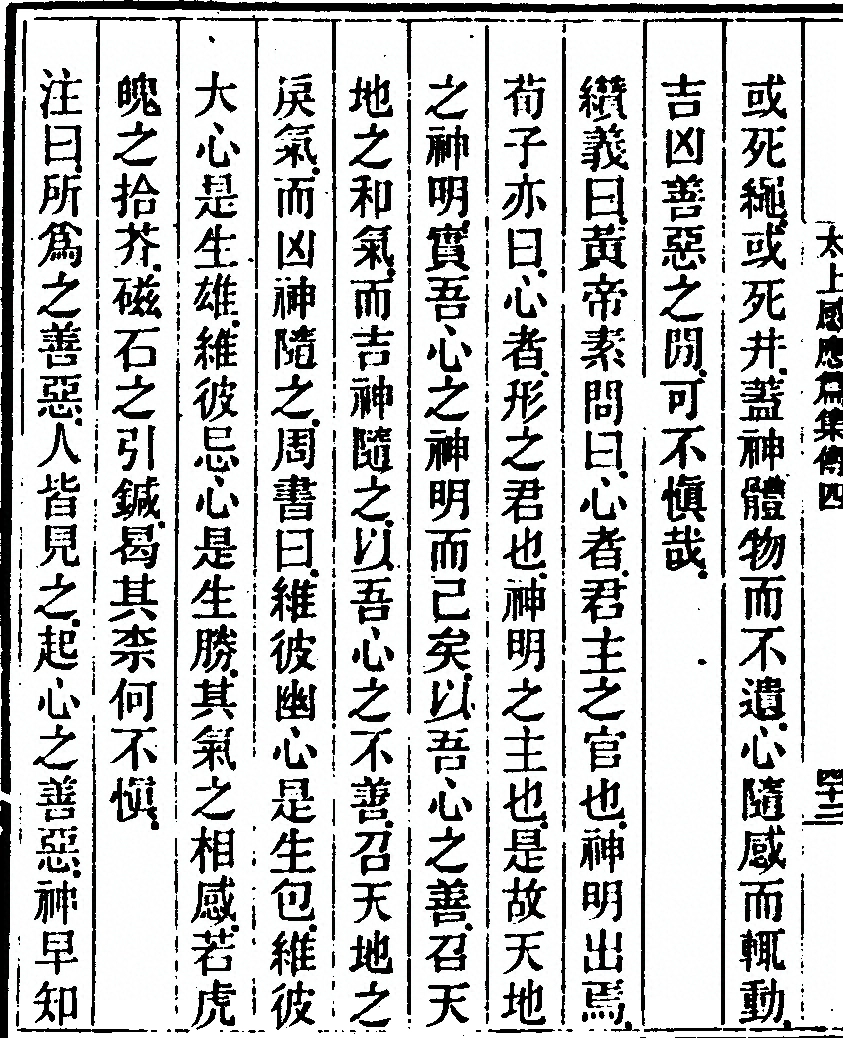 太上感應篇集傳四
或死繩。或死井。蓋神體物而不遺。心隨感而輒動。
吉凶善惡之閒。可不愼哉。
纘義曰。黃帝素問曰。心者。君主之官也。神明出焉。
荀子亦曰。心者。形之君也。神明之主也。是故天地
之神明。實吾心之神明而已矣。以吾心之善。召天
地之和氣。而吉神隨之。以吾心之不善。召天地之
戾氣。而凶神隨之。周書曰。維彼幽心是生包。維彼
大心是生雄。維彼忌心是生勝。其氣之相感。若虎
魄之拾芥。磁石之引鍼。曷其柰何不愼。
注曰。所爲之善惡。人皆見之。起心之善惡。神早知